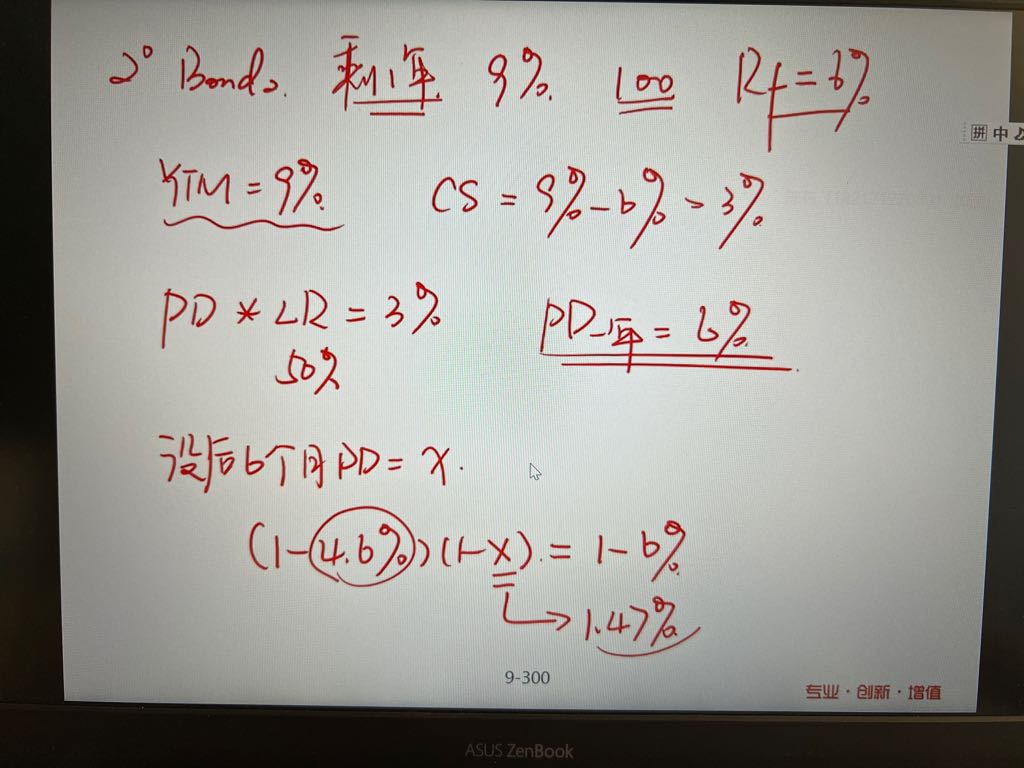 2° Bonds. 剩1年. 9%. 100 Rf = 6%
拼 中
YTM = 9%. CS = 9% - 6% = 3%
PD * LR = 3% PD一年 = 6%
50%
设后6个月PD = x.
(1-4.6%)(1-x). = 1-6%
→ 1.47%
9-300
专业·创新·增值
ASUS ZenBook